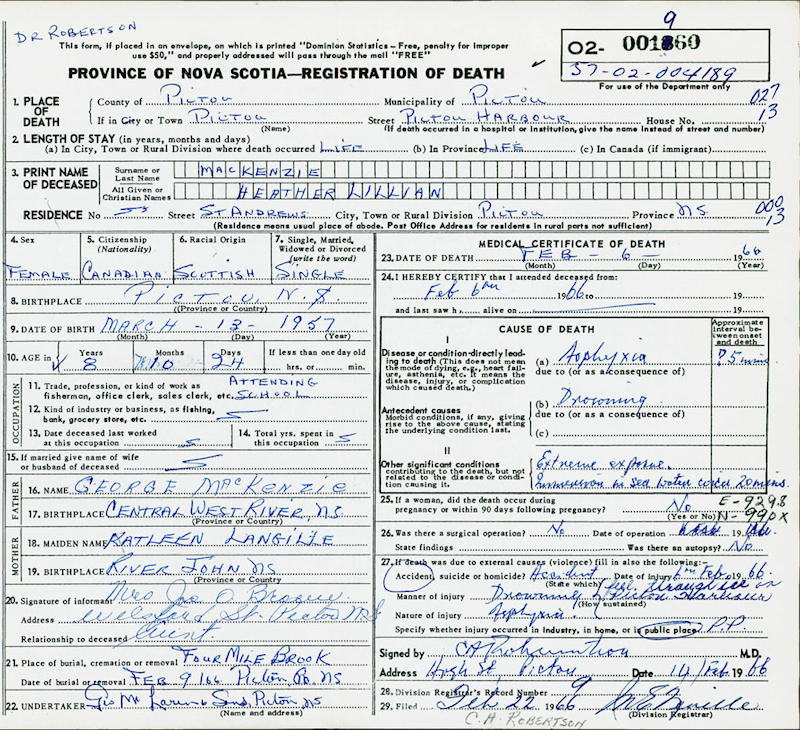 DR ROBERTSON
This form, if placed in an envelope, on which is printed "Dominion Statistics – Free, penalty for improper use $50," and properly addressed will pass through the mail "FREE"
9
02- 001860
57-02-004189
For use of the Department only
PROVINCE OF NOVA SCOTIA—REGISTRATION OF DEATH
1. PLACE OF DEATH
County of PICTOU Municipality of PICTOU 027
If in City or Town PICTOU Street PICTOU HARBOUR House No. 13
(Name) (If death occurred in a hospital or institution, give the name instead of street and number)
2. LENGTH OF STAY (in years, months and days)
(a) In City, Town or Rural Division where death occurred LIFE (b) In Province LIFE (c) In Canada (if immigrant)
3. PRINT NAME OF DECEASED
Surname or Last Name MACKENZIE
All Given or Christian Names HEATHER LILLIAN
RESIDENCE No Street ST ANDREWS City, Town or Rural Division PICTOU Province NS 000 13
(Residence means usual place of abode. Post Office Address for residents in rural parts not sufficient)
4. Sex
FEMALE
5. Citizenship (Nationality)
CANADIAN
6. Racial Origin
SCOTTISH
7. Single, Married, Widowed or Divorced (write the word)
SINGLE
8. BIRTHPLACE PICTOU, N.S.
(Province or Country)
9. DATE OF BIRTH MARCH - 13 - 1957
(Month) (Day) (Year)
10. AGE in
Years 8 Months 10 Days 24
If less than one day old
hrs. or min.
OCCUPATION
11. Trade, profession, or kind of work as fisherman, office clerk, sales clerk, etc. ATTENDING SCHOOL
12. Kind of industry or business, as fishing, bank, grocery store, etc.
13. Date deceased last worked at this occupation
14. Total yrs. spent in this occupation
15. If married give name of wife or husband of deceased
FATHER
16. NAME GEORGE MACKENZIE
17. BIRTHPLACE CENTRAL WEST RIVER, NS
(Province or Country)
MOTHER
18. MAIDEN NAME KATLEEN LANGILLE
19. BIRTHPLACE RIVER JOHN NS
(Province or Country)
20. Signature of informant Mrs
Address St. Pictou NS
Relationship to deceased Aunt
21. Place of burial, cremation or removal FOUR MILE BROOK
Date of burial or removal FEB 9/66 Pictou Co. NS
22. UNDERTAKER Geo McLaren & Sons, Pictou NS
(Name and address)
MEDICAL CERTIFICATE OF DEATH
23. DATE OF DEATH FEB - 6 - 1966
(Month) (Day) (Year)
24. I HEREBY CERTIFY that I attended deceased from:
Feb 6th 1966 to 19
and last saw h alive on 19
CAUSE OF DEATH
Approximate Interval between onset and death
I
Disease or condition directly leading to death (This does not mean the mode of dying, e.g., heart failure, asthenia, etc. It means the disease, injury, or complication which caused death.)
(a) Asphyxia ? 5 mins
due to (or as a consequence of)
Antecedent causes
Morbid conditions, if any, giving rise to the above cause, stating the underlying condition last.
(b) Drowning
due to (or as a consequence of)
(c)
II
Other significant conditions contributing to the death, but not related to the disease or condition causing it.
Extreme exposure.
Immersion in sea water 20 mins.
25. If a woman, did the death occur during pregnancy or within 90 days following pregnancy? No
(Yes or No)
E-9298
N-990X
26. Was there an surgical operation? No Date of operation 19
State findings Was there an autopsy? No
27. If death was due to external causes (violence) fill in also the following:
Accident, suicide or homicide? Accident Date of injury 6th Feb 1966.
(State which)
Manner of injury Drowning fell through ice in Pictou Harbour
(How sustained)
Nature of injury Asphyxia
Specify whether injury occurred in industry, in home, or in public place P.P.
Signed by M.D.
Address High St. Pictou Date 14/Feb 1966
28. Division Registrar's Record Number 9
29. Filed Feb 22 1966
(Division Registrar)
C. H. ROBERTSON